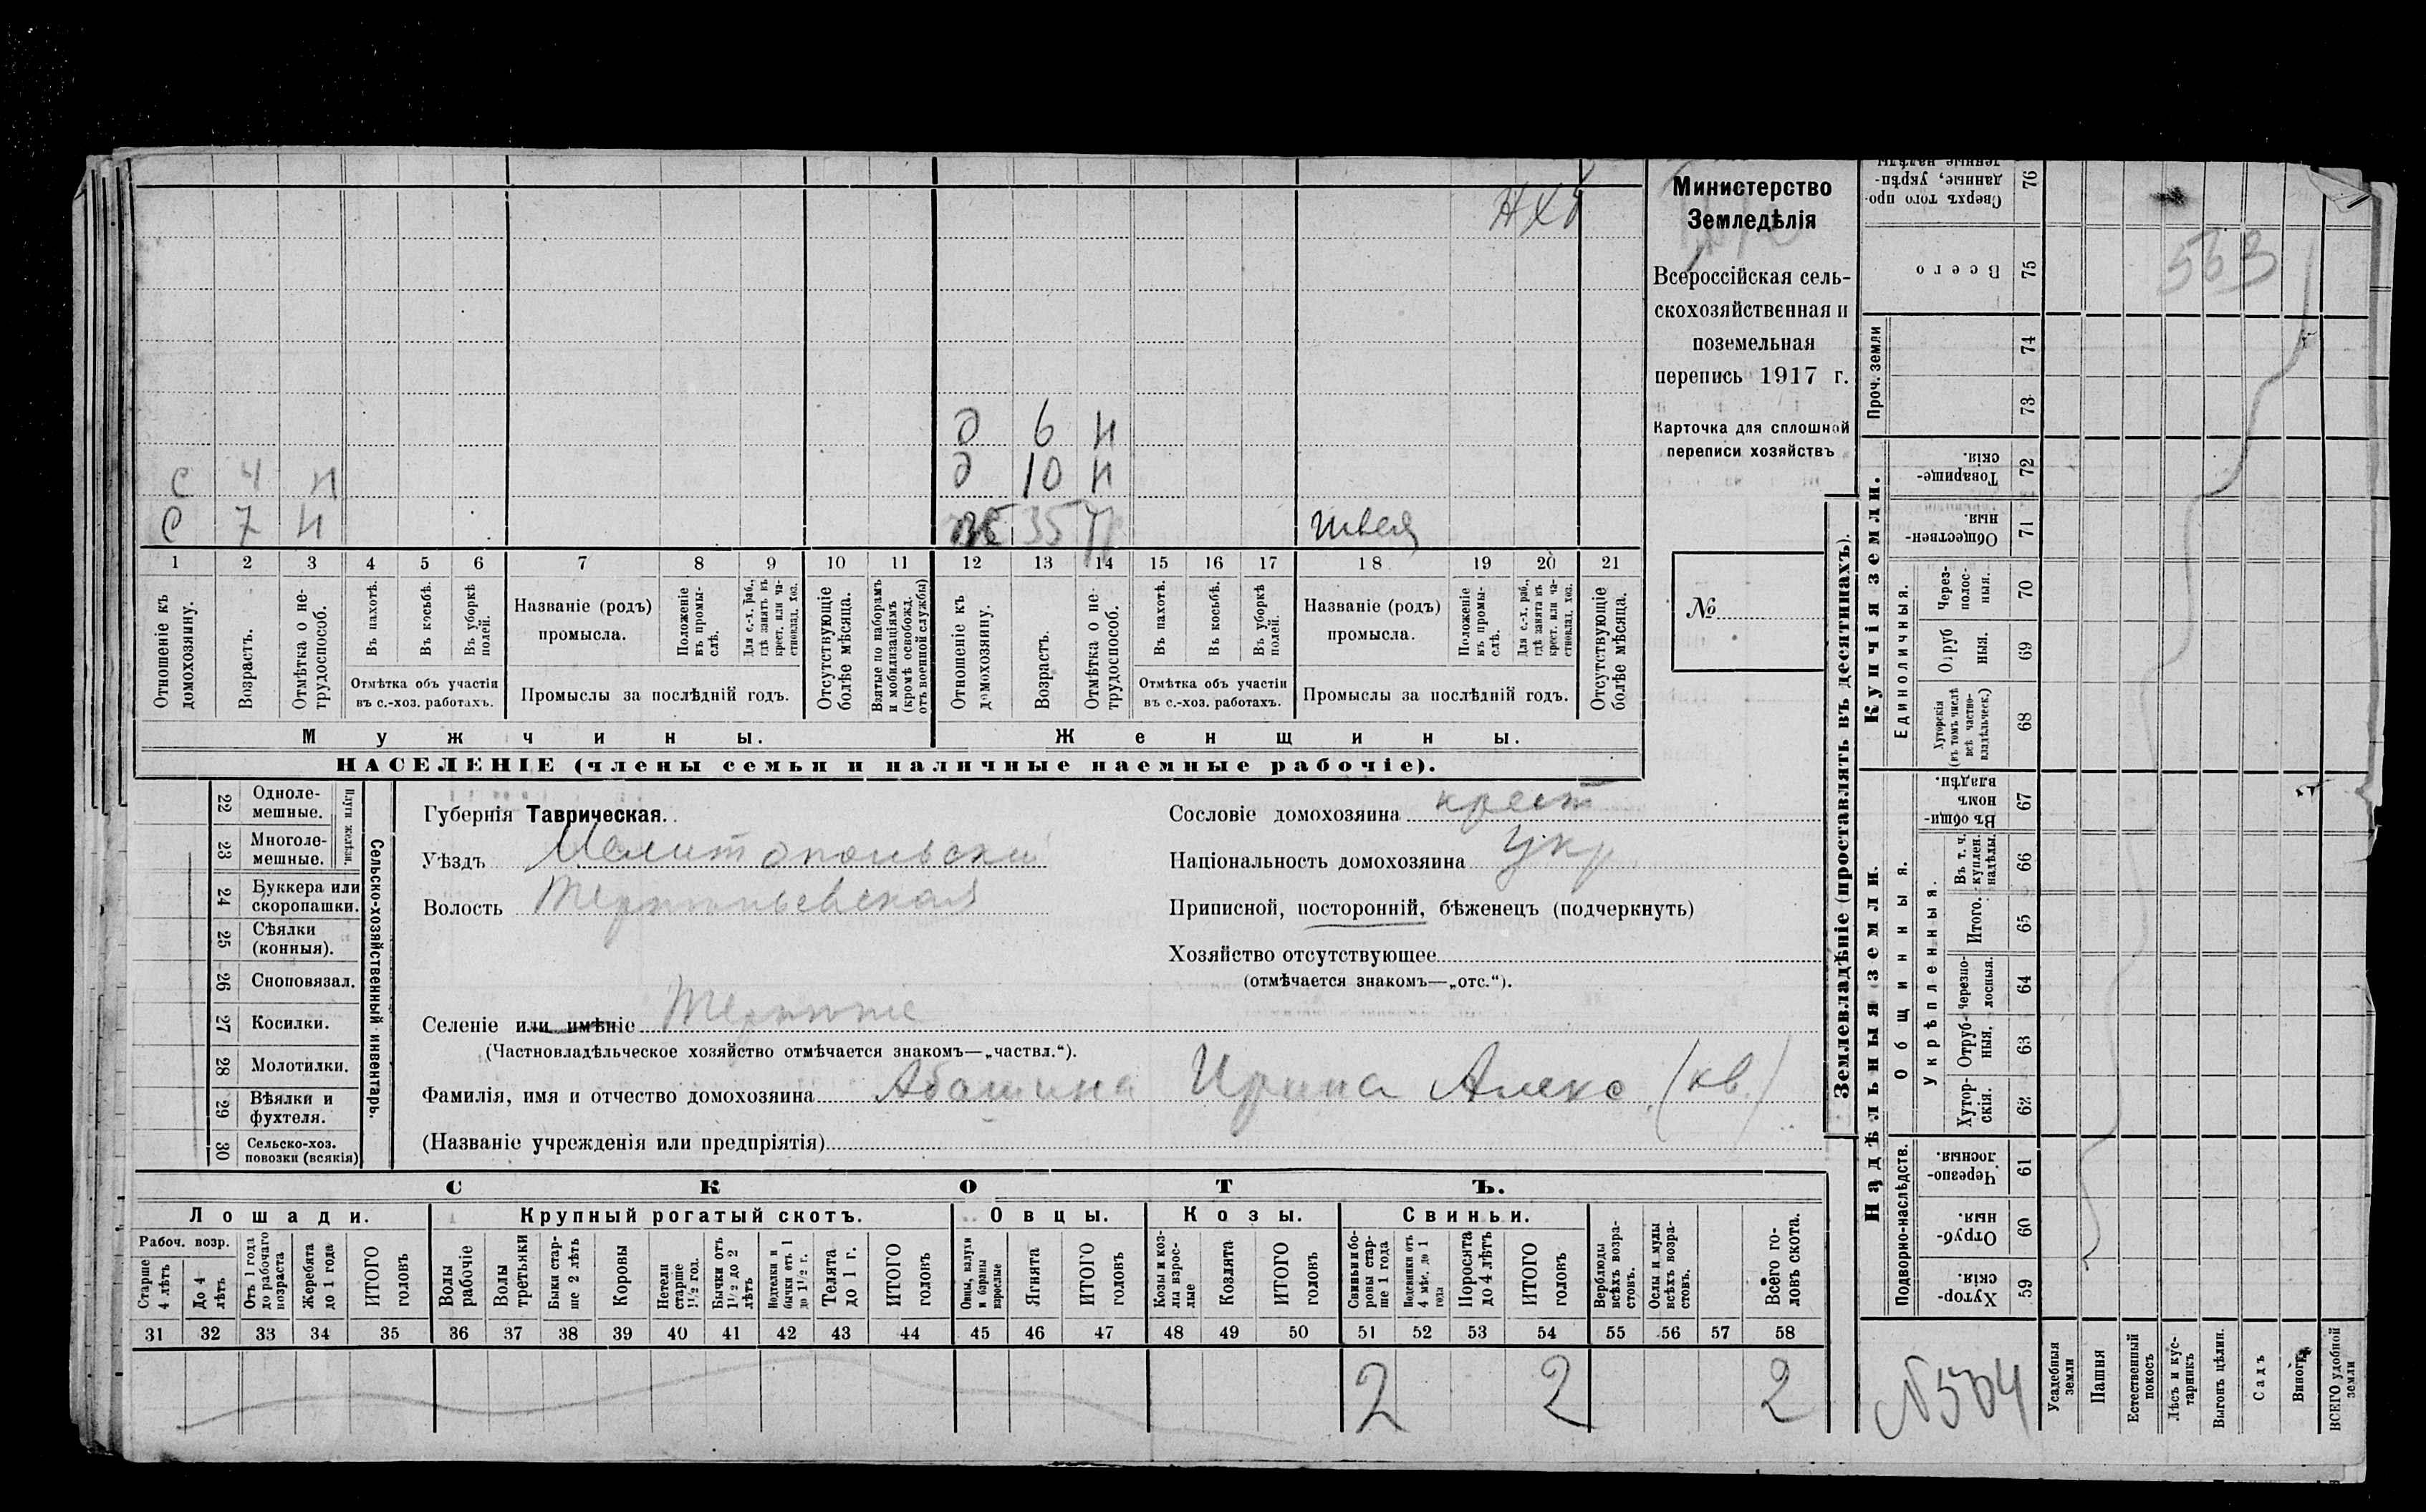 НХ
д 6 н
с 4 н д 10 н
с 7 н ж 35 швея
1 2 3 4 5 6 7 8 9 10 11 12 13 14 15 16 17 18 19 20 21
Отношеніе къ домохозяину.
Возрастъ.
Отмѣтка о нетрудоспособ.
Въ пахотѣ.
Въ косьбѣ.
Въ уборкѣ полей.
Отмѣтка объ участіи
въ с.-хоз. работахъ.
Названіе (родъ)
промысла.
Положеніе въ промыслѣ.
Для с.-х. раб., гдѣ занятъ въ крест. или частновлад. хоз.
Промыслы за послѣдній годъ.
Отсутствующіе болѣе мѣсяца.
Взятые по наборамъ и мобилизаціямъ (кромѣ освобожд. отъ военной службы)
Отношеніе къ домохозяину.
Возрастъ.
Отмѣтка о нетрудоспособ.
Въ пахотѣ.
Въ косьбѣ.
Въ уборкѣ полей.
Отмѣтка объ участіи
въ с.-хоз. работахъ.
Названіе (родъ)
промысла.
Положеніе въ промыслѣ.
Для с.-х. раб., гдѣ занята въ крест. или частновлад. хоз.
Промыслы за послѣдній годъ.
Отсутствующіе болѣе мѣсяца.
Мужчины. Женщины.
НАСЕЛЕНІЕ (члены семьи и наличные наемные рабочіе).
Министерство
Земледѣлія
Всероссійская сель-
скохозяйственная и
поземельная
перепись 1917 г.
Карточка для сплошной
переписи хозяйствъ
№
22 Однолемешные.
23 Многолемешные.
Плуги желѣзн.
24 Буккера или скоропашки.
25 Сѣялки (конныя).
26 Сноповязал.
27 Косилки.
28 Молотилки.
29 Вѣялки и фухтеля.
30 Сельско-хоз. повозки (всякія)
Сельско-хозяйственный инвентарь.
Губернія Таврическая.
Уѣздъ Мелитопольский
Волость Терпеньевская
Селеніе или имѣніе Терпенье
(Частновладѣльческое хозяйство отмѣчается знакомъ—„частвл.“).
Фамилія, имя и отчество домохозяина Абашина Ирина Алекс. (кв.)
(Названіе учрежденія или предпріятія)
Сословіе домохозяина крест
Національность домохозяина Укр
Приписной, посторонній, бѣженецъ (подчеркнуть)
Хозяйство отсутствующее
(отмѣчается знакомъ—„отс.“).
СКОТЪ.
Лошади. Крупный рогатый скотъ. Овцы. Козы. Свиньи.
Рабоч. возр.
Старше 4 лѣтъ
До 4 лѣтъ
Отъ 1 года до рабочаго возраста
Жеребята до 1 года
ИТОГО головъ
Волы рабочіе
Волы третьяки
Быки старше 2 лѣтъ
Коровы
Нетели старше 1½ год.
Бычки отъ 1½ до 2 лѣтъ
Подтелки и бычки отъ 1 до 1½ г.
Телята до 1 г.
ИТОГО головъ
Овцы, валухи и бараны взрослые
Ягнята
ИТОГО головъ
Козы и козлы взрослые
Козлята
ИТОГО головъ
Свиньи и боровы старше 1 года
Подсвинки отъ 4 мѣс. до 1 года
Поросята до 4 лѣтъ
ИТОГО головъ
Верблюды всѣхъ возрастовъ.
Ослы и мулы всѣхъ возрастовъ.
Всего головъ скота.
31 32 33 34 35 36 37 38 39 40 41 42 43 44 45 46 47 48 49 50 51 52 53 54 55 56 57 58
2 2 2
Землевладѣніе (проставлять въ десятинахъ).
Купчія земли.
Надѣльныя земли.
Проч. земли
Единоличныя.
Общинныя.
Укрѣпленныя.
Подворно-наслѣдств.
Сверхъ того проданные, укрѣпленные надѣлы 76
Всего 75
74
73
Товарищескія. 72
Общественныя. 71
Черезполосныя. 70
Отрубныя. 69
Хуторскія (въ томъ числѣ всѣ частновладѣльческ.) 68
Въ общинномъ владѣн. 67
Въ т. ч. куплен. надѣлы 66
Итого. 65
Черезполосныя. 64
Отрубныя. 63
Хуторскія. 62
Черезполосныя. 61
Отрубныя. 60
Хуторскія. 59
563
№ 504
Усадебныя земли
Пашня
Естественный покосъ
Лѣсъ и кустарникъ
Выгонъ цѣлин.
Садъ
Виногр.
ВСЕГО удобной земли